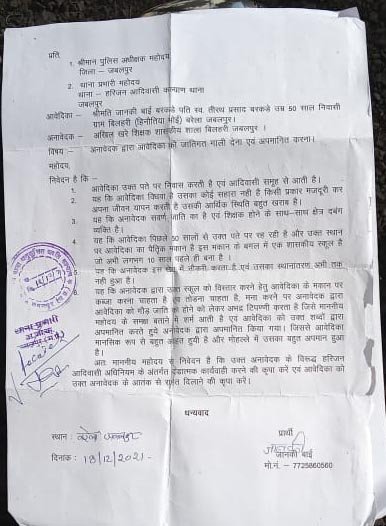 प्रति,
1. श्रीमान पुलिस अधीक्षक महोदय
जिला – जबलपुर
2. थाना प्रभारी महोदय
थाना – हरिजन आदिवासी कल्याण थाना
जबलपुर
आवेदिका – श्रीमति जानकी बाई बरकडे पति स्व. तीरथ प्रसाद बरकडे उम्र 50 साल निवासी
ग्राम बिलहरी (हिनौतिया भोई) बरेला जबलपुर।
अनावेदक – अखिल खरे शिक्षक शासकीय शाला बिलहरी जबलपुर ।
विषय – अनावेदक द्वारा आवेदिका को जातिगत गाली देना एवं अपमानित करना।
महोदय,
निवेदन है कि –
1. आवेदिका उक्त पते पर निवास करती है एवं आदिवासी समूह से आती है।
2. यह कि आवेदिका विधवा है उसका कोई सहारा नही है किसी प्रकार मजदूरी कर
अपना जीवन यापन करती है उसकी आर्थिक स्थिति बहुत खराब है।
3. यह कि अनावेदक सवर्ण जाति का है एवं शिक्षक होने के साथ–साथ क्षेत्र दबंग
व्यक्ति है।
4. यह कि आवेदिका पिछले 50 सालों से उक्त पते पर रह रही है और उक्त स्थान
पर आवेदिका का पैतृक मकान है इस मकान के बगल में एक शासकीय स्कूल है
जो अभी लगभग 10 साल पहले ही बना है ।
यह कि अनावेदक इस में नौकरी करता है एवं उसका स्थानातरण अभी तक
नही हुआ है।
यह कि अनावेदक द्वारा उक्त स्कूल को विस्तार करने हेतु आवेदिका के मकान पर
कब्जा करना चाहता है एवं तोडना चाहता है, मना करने पर अनावेदक द्वारा
आवेदिका को गौड़ जाति का होने को लेकर अभद्र टिप्पणी करता है जिसे माननीय
महोदय के समक्ष बताने में शर्म आती है एवं आवेदिका को उक्त शब्दों द्वारा
अपमानित करते हुये अनावेदक द्वारा अपमानित किया गया। जिससे आवेदिका
मानसिक रूप से बहुत आहत हुयी है और मोहल्ले में उसका बहुत अपमान हुआ
है।
अतः माननीय महोदय से निवेदन है कि उक्त अनावेदक के विरूद्ध हरिजन
आदिवासी अधिनियम के अंतर्गत दंडात्मक कार्यवाही करने की कृपा करें एवं आवेदिका को
उक्त अनावेदक के आतंक से राहत दिलाने की कृपा करें।
थाना प्रभारी
धन्यवाद
स्थान:
दिनांक : 13/12/2021-
प्रार्थी
जानकी
जानकी बाई
मो.नं. – 7725860560